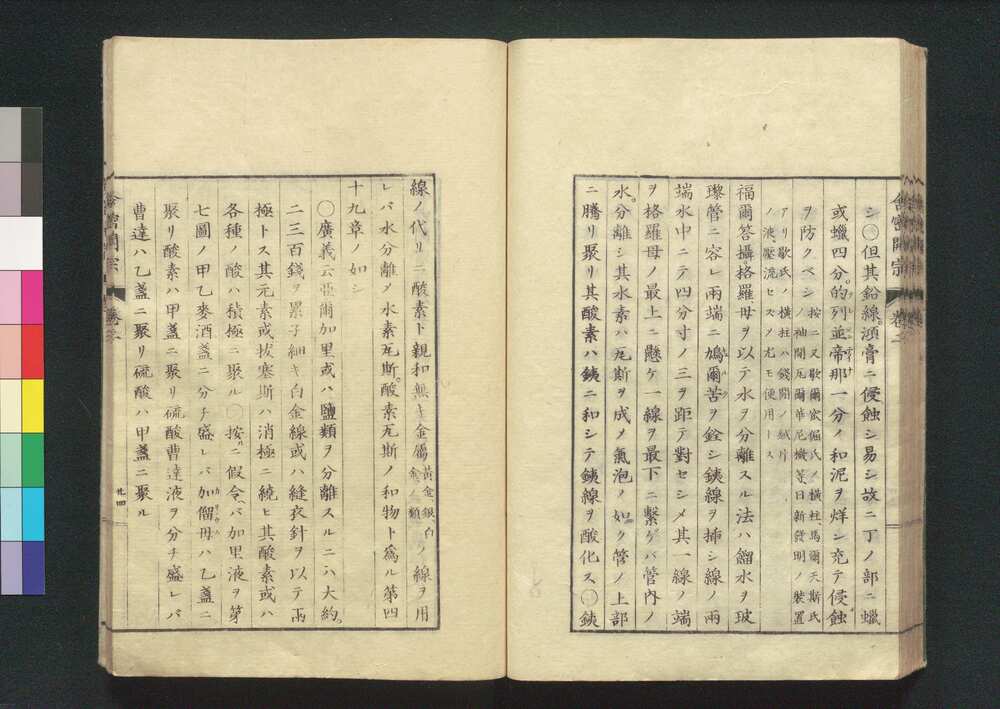 シ〇但其鉛線湏膏ニ侵蝕シ易シ故ニ丁ノ部ニ蠟
或蠟四分的列並帝那一分ノ和泥ヲ烊シ充テ侵蝕
ヲ防クベシ
按ニ又歇爾 氏ノ横柱馬爾天斯氏
ノ 閣瓦爾華尼機等日新發明ノ装置
アリ歇氏ノ横柱ハ錢間ノ紙片
ノ液壓流セズメ尤モ便用トス
福爾答攝格羅母ヲ以テ水ヲ分離スル法ハ餾水ヲ玻
瓈管ニ容レ兩端ニ鳩爾苦ヲ銓シ銕線ヲ挿シ線ノ兩
端水中ニテ四分寸ノ三ヲ距テ對セシメ其一線ノ端
ヲ格羅母ノ最上ニ懸ケ一線ヲ最下ニ繋ゲバ管內ノ
水分離シ其水素ハ瓦斯ヲ成メ氣泡ノ如ク管ノ上部
ニ騰リ聚リ其酸素ハ銕ニ和シテ銕線ヲ酸化ス〇銕
舎密開宗 卷二
線ノ代リニ酸素ト親和無キ金屬
黄金銀白
金ノ類
ノ線ヲ用
レバ水分離メ水素瓦斯酸素瓦斯ノ和物ト爲ル第四
十九章ノ如シ
〇廣義云亞爾加里或ハ鹽類ヲ分離スルニハ大約
二三百錢ヲ累子細キ白金線或ハ縫衣針ヲ以テ兩
極トス其元素或抜塞斯ハ消極ニ繞ヒ其酸素或ハ
各種ノ酸ハ積極ニ聚ル〇按ニ假令バ加里液ヲ第
七圖ノ甲乙麥酒盞ニ分チ盛レバ加僧母ハ乙盞ニ
聚リ酸素ハ甲盞ニ聚リ硫酸曹達液ヲ分チ盛レバ
曹達ハ乙盞ニ聚リ硫酸ハ甲盞ニ聚ル
舎密開宗 卷二
廿四